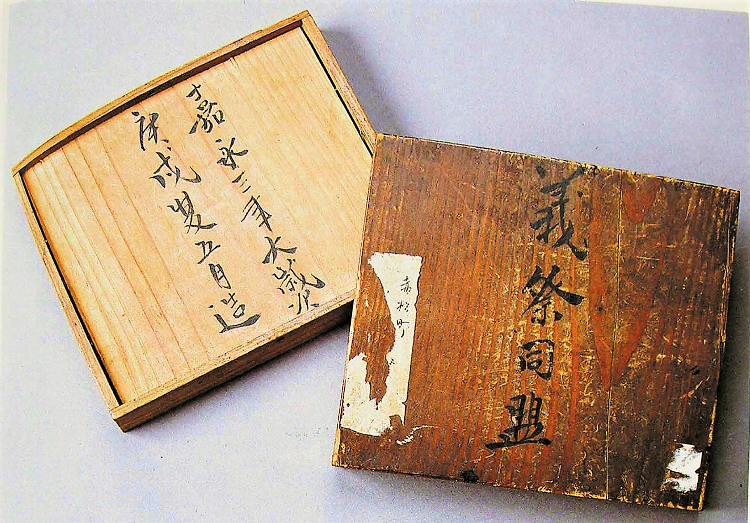 嘉永三年大歳次
庚戌夏五月造
義祭同盟
赤松町